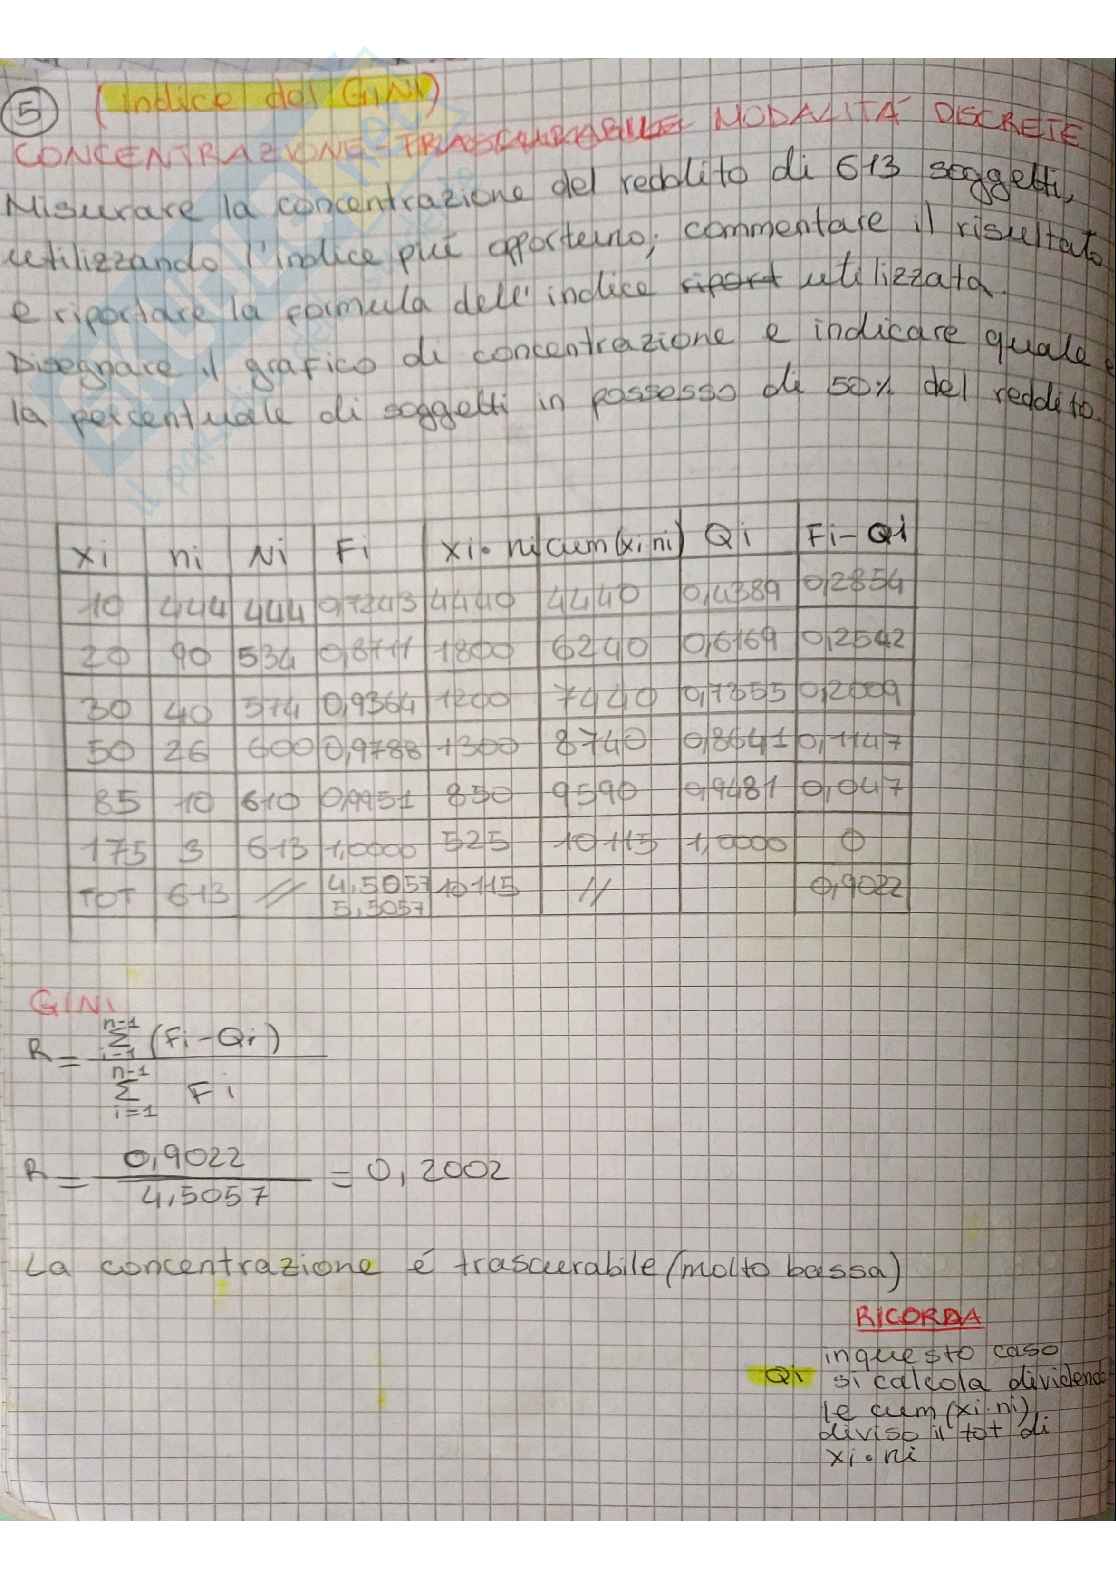 5 (Indice dol GINI)
CONCENTRAZIONE TRASCURABILE MODALITÀ DISCRETE
Misurare la concentrazione del reddito di 613 soggetti,
utilizzando l'indice più opportuno; commentare il risultato
e riportare la formula dell'indice riport utilizzata.
Disegnare il grafico di concentrazione e indicare quale è
la percentuale di soggetti in possesso di 50% del reddito.
xi ni Ni Fi xi·ni cum(xi ni) Qi Fi-Qi
10 444 444 0,7243 4440 4440 0,4389 0,2854
20 90 534 0,8711 1800 6240 0,6169 0,2542
30 40 574 0,9364 1200 7440 0,7355 0,2009
50 26 600 0,9788 1300 8740 0,8641 0,1147
85 10 610 0,9951 850 9590 0,9481 0,047
175 3 613 1,0000 525 10115 1,0000 0
TOT 613 // 4,5057 10115 // 0,9022
5,5057
GINI
n-1
R = Σ (Fi-Qi)
i=1
n-1
Σ Fi
i=1
R = 0,9022 = 0,2002
4,5057
La concentrazione é trascurabile (molto bassa)
RICORDA
in questo caso
Qi si calcola dividend
le cum (xi·ni)
diviso il tot di
xi·ni